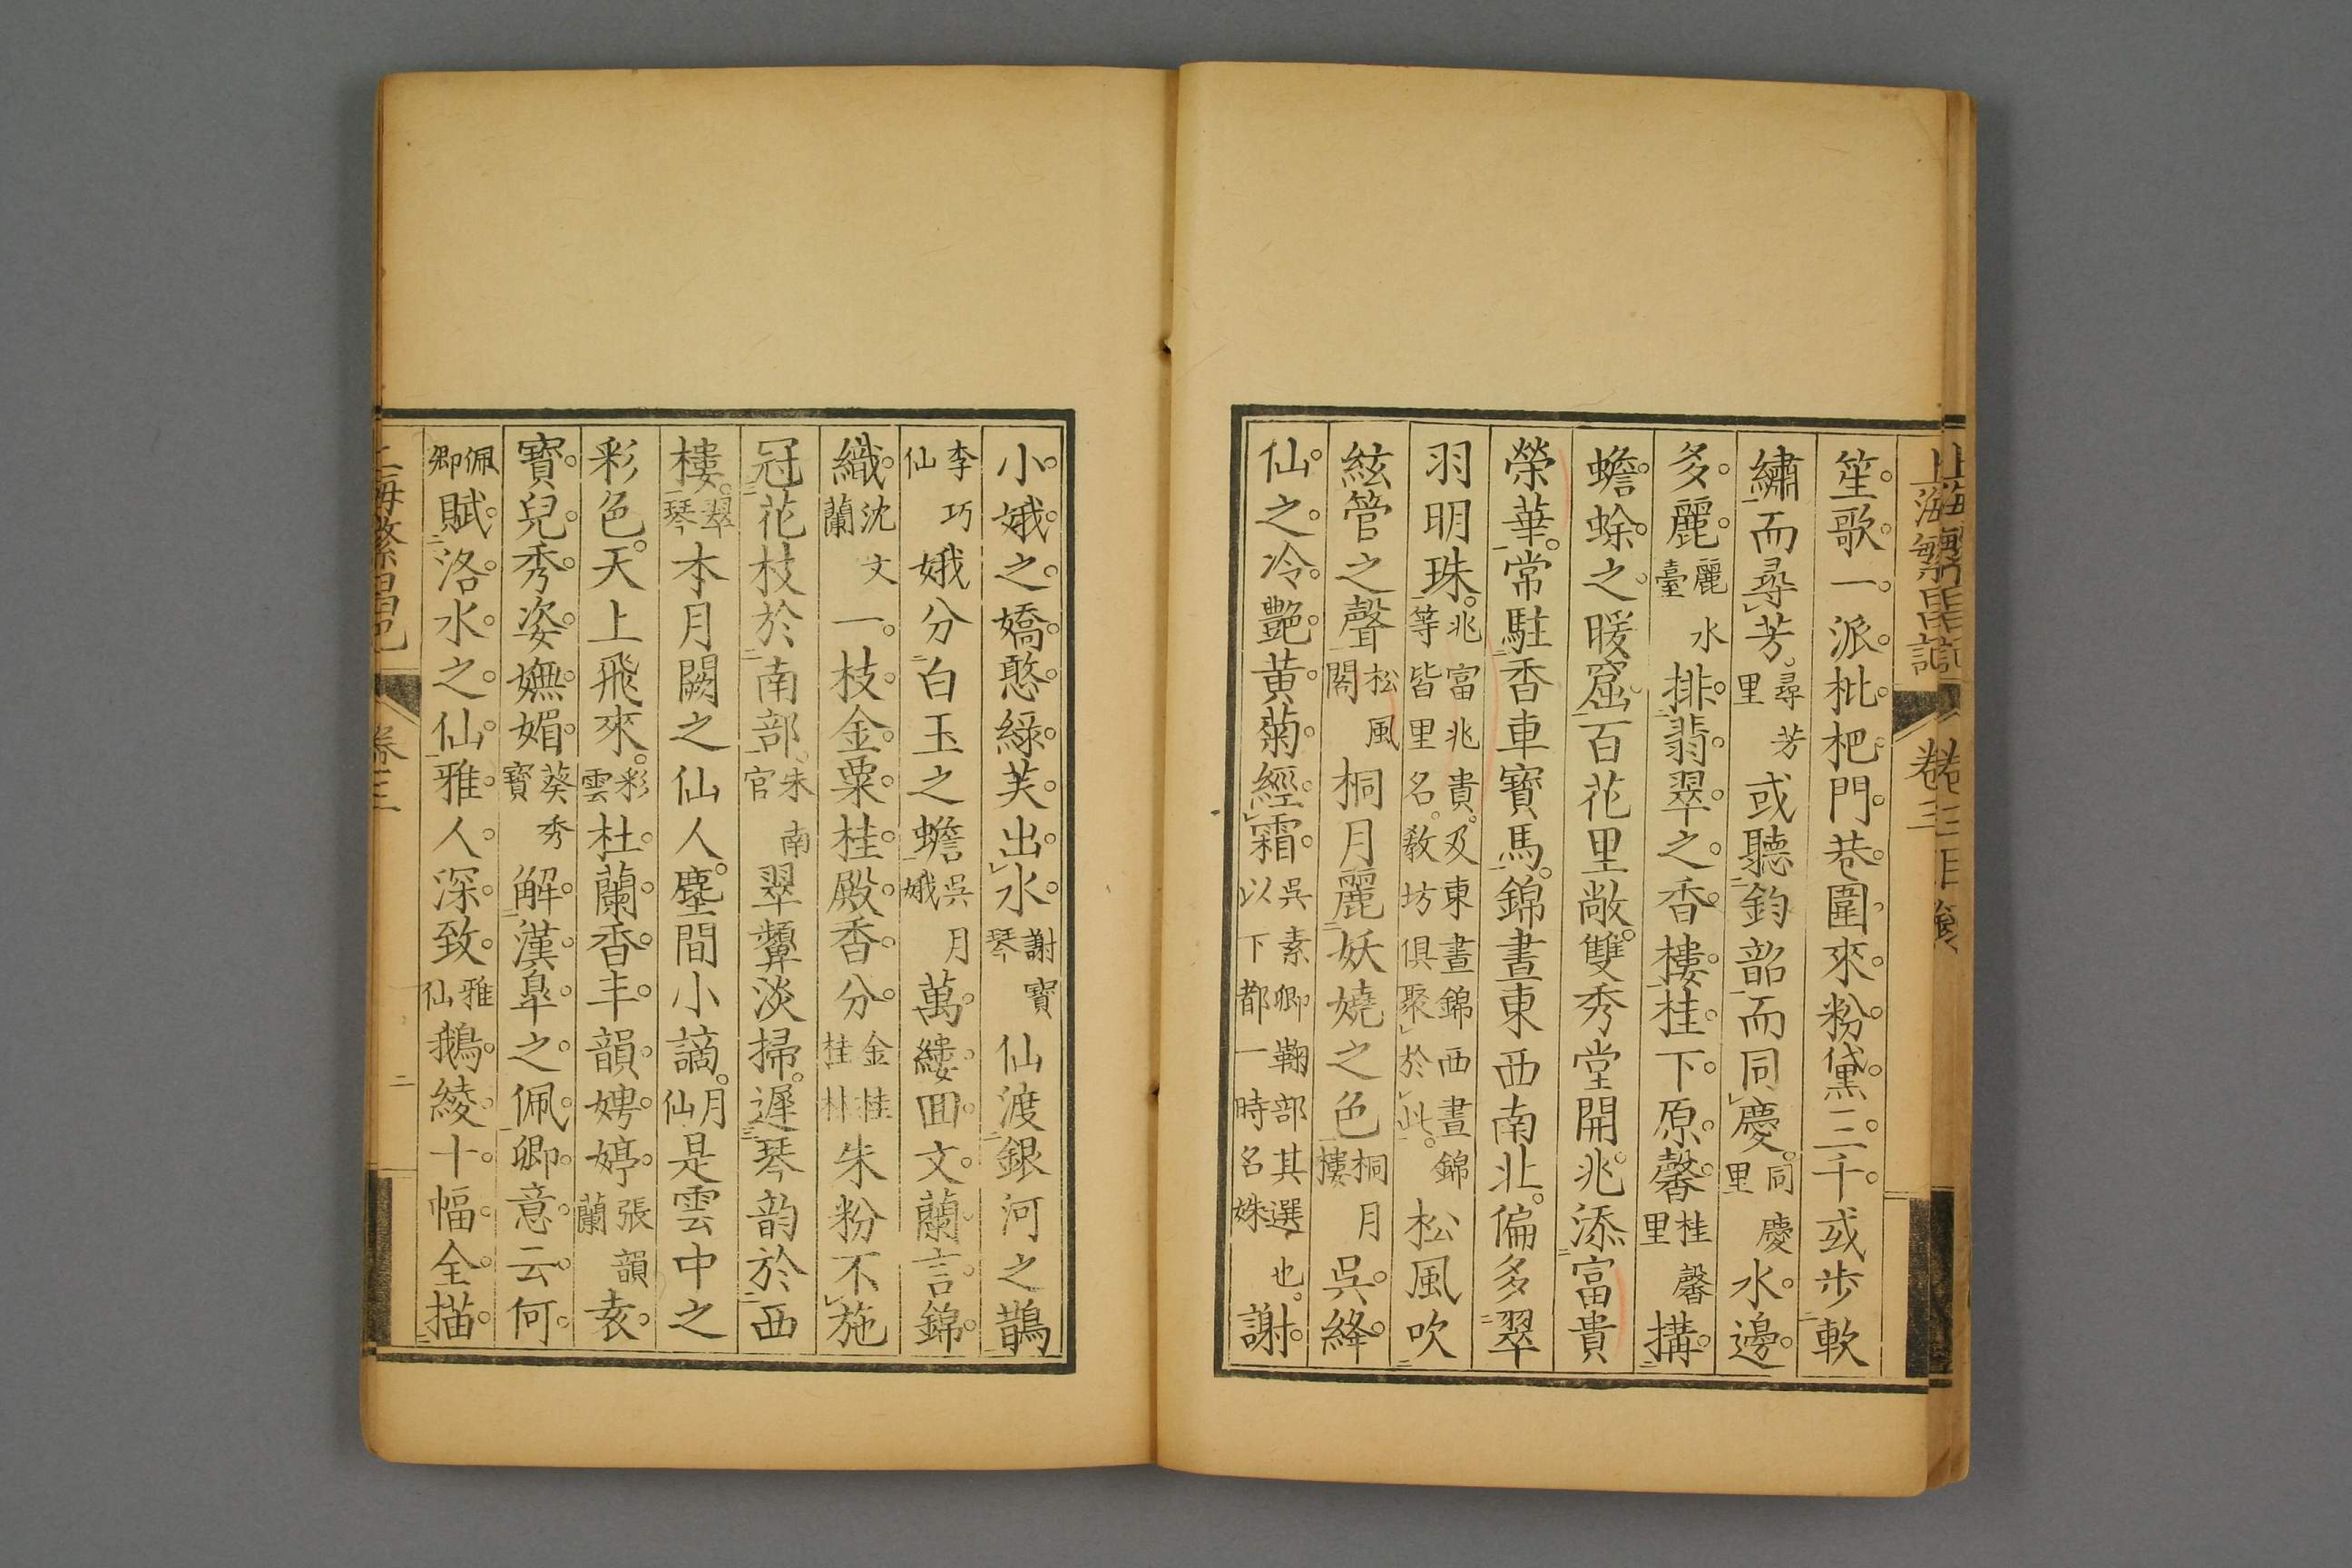 上海繁昌記 卷三
笙歌一派枇杷門巷圍來粉黛三千或步軟
繡而尋芳尋芳里或聽鈞韶而同慶同慶里水邊
多麗麗水臺排翡翠之香樓桂下原馨桂馨里搆
蟾蜍之暖窟百花里敞雙秀堂開兆添富貴
榮華常駐香車寶馬錦晝東西南北偏多翠
羽明珠兆富兆貴及東晝錦西晝錦等皆里名教坊俱聚於此松風吹
絃管之聲松風閣桐月麗妖嬈之色桐月樓吳絳
仙之冷艷黄菊經霜吳素卿鞠部其選也以下都一時名姝謝
小娥之嬌憨綠芙出水謝寶琴仙渡銀河之鵲
李巧仙娥分白玉之蟾吳月娥萬縷回文蘭言錦
織沈文蘭一枝金粟桂殿香分金桂桂林朱粉不施
冠花枝於南部朱南官翠顰淡掃遲琴韵於西
樓翠琴本月闕之仙人塵間小謫月仙是雲中之
彩色天上飛來彩雲杜蘭香丰韻娉婷張韻蘭袁
寶兒秀姿嫵媚葵秀寶解漢臯之佩卿意云何
佩卿賦洛水之仙雅人深致雅仙鵝綾十幅全描
上海繁昌記 卷三 二